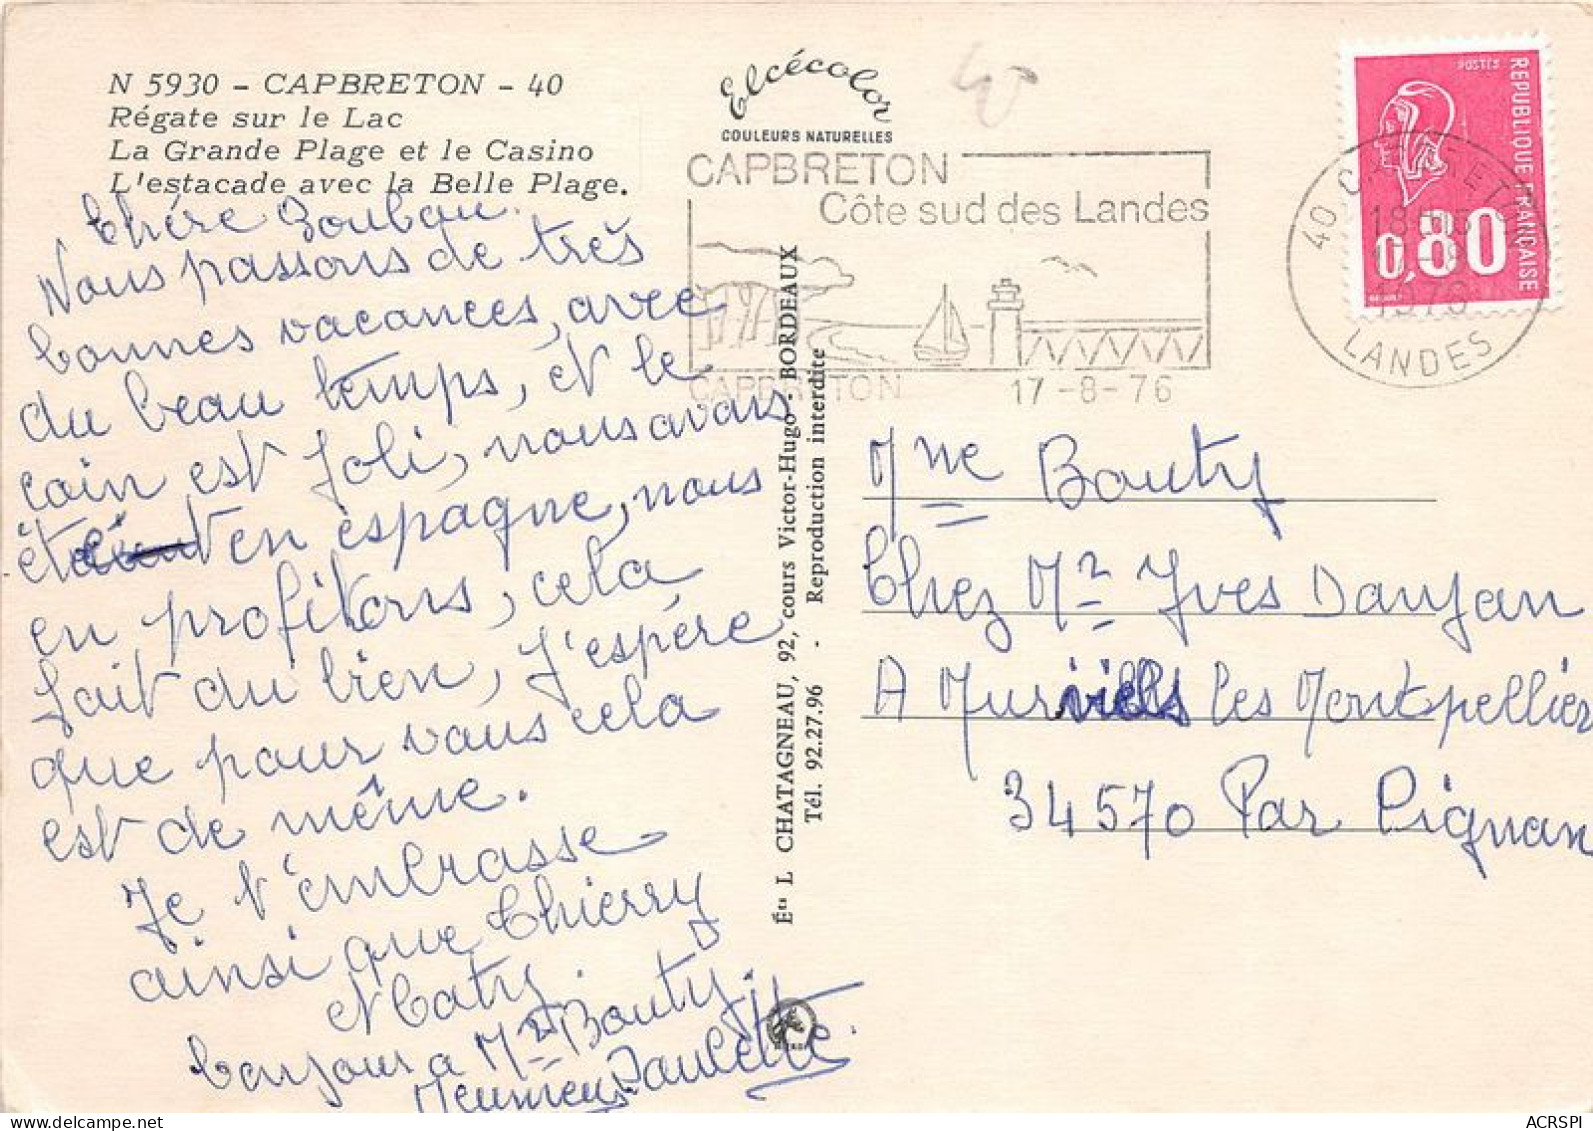 N 5930 - CAPBRETON - 40
Régate sur le Lac
La Grande Plage et le Casino
L'estacade avec la Belle Plage.
Chére Zoubau.
Nous passons de très
bonnes vacances, avec
du beau temps, et le
coin est Joli, nous avons
été en espagne, nous
en profitons, cela
fait du bien, J'espére
que pour vous cela
est de même.
Je t'embrasse
ainsi que Thierry
et Caty.
bonjour a Mr Bouty.
Meunieus Paulette.
Elcécolor
COULEURS NATURELLES
40
Éts L CHATAGNEAU, 92, cours Victor-Hugo - BORDEAUX
Tél. 92.27.96 - Reproduction interdite
CAPBRETON
Côte sud des Landes
CAPBRETON 17-8-76
POSTES
REPUBLIQUE FRANÇAISE
0,80
40 CAPBRETON
LANDES
Mme Bouty
Chez Mr Yves Daujan
A Murviels les Montpellier
34570 Par Pignan
ACRSPI